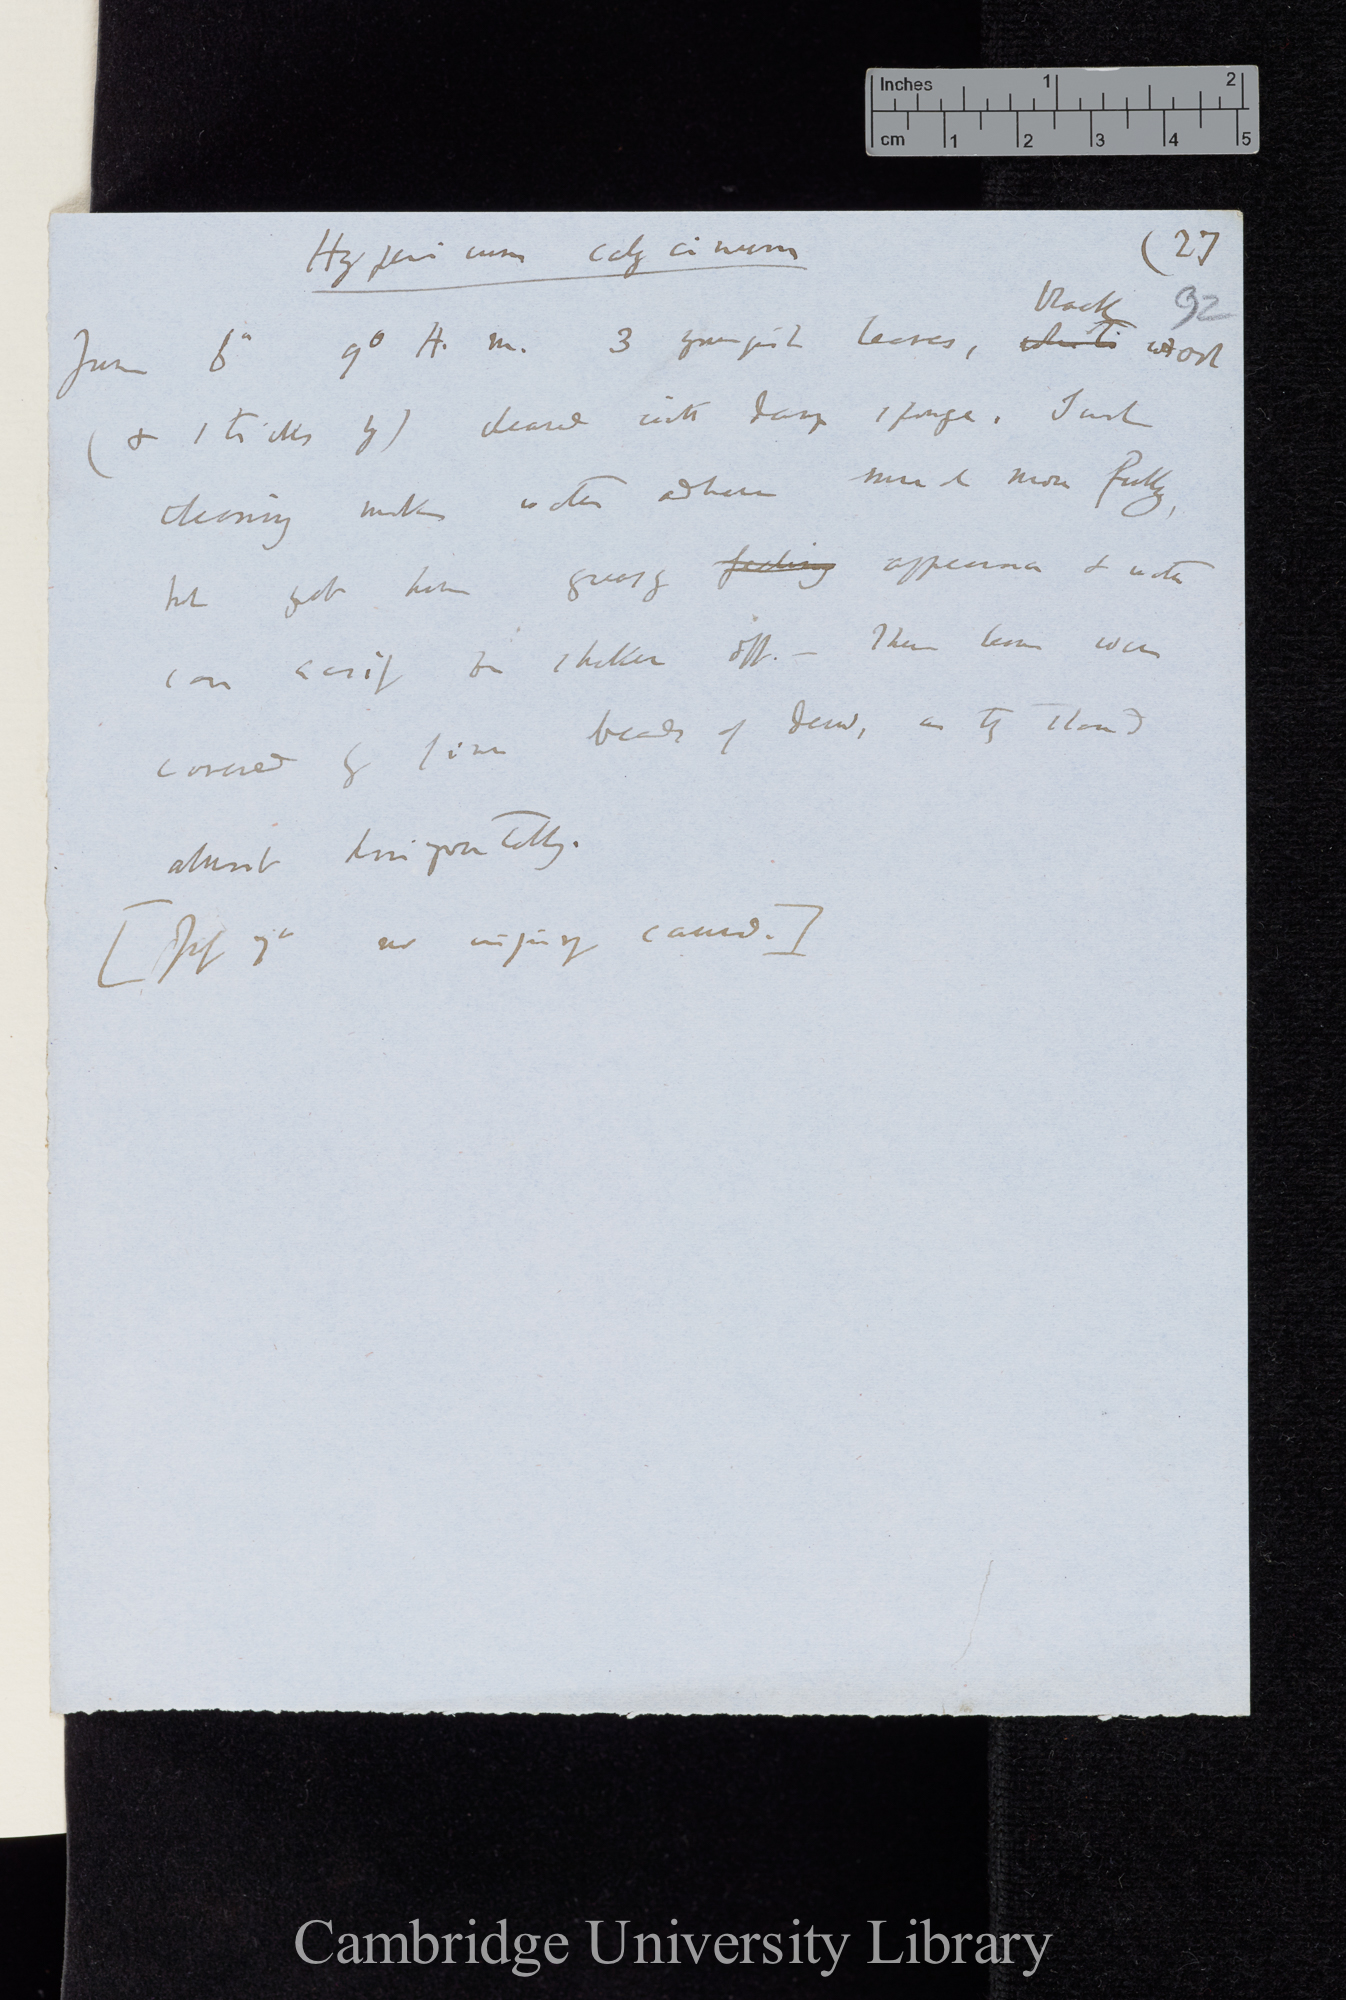 Inches 1 2
cm 1 2 3 4 5
Hypericum calycinum (27
black 92
June 6th 9o A. m. 3 youngish leaves, white wool
(& sticks by) cleaned with damp sponge. Such
cleaning makes water adhere much more fully,
but yet have greasy feeling appearance & water
can easily be shaken off.— These leaves were
covered by fine beads of dew, as they stand
almost horizontally.
[July 7th no injury caused.]
Cambridge University Library